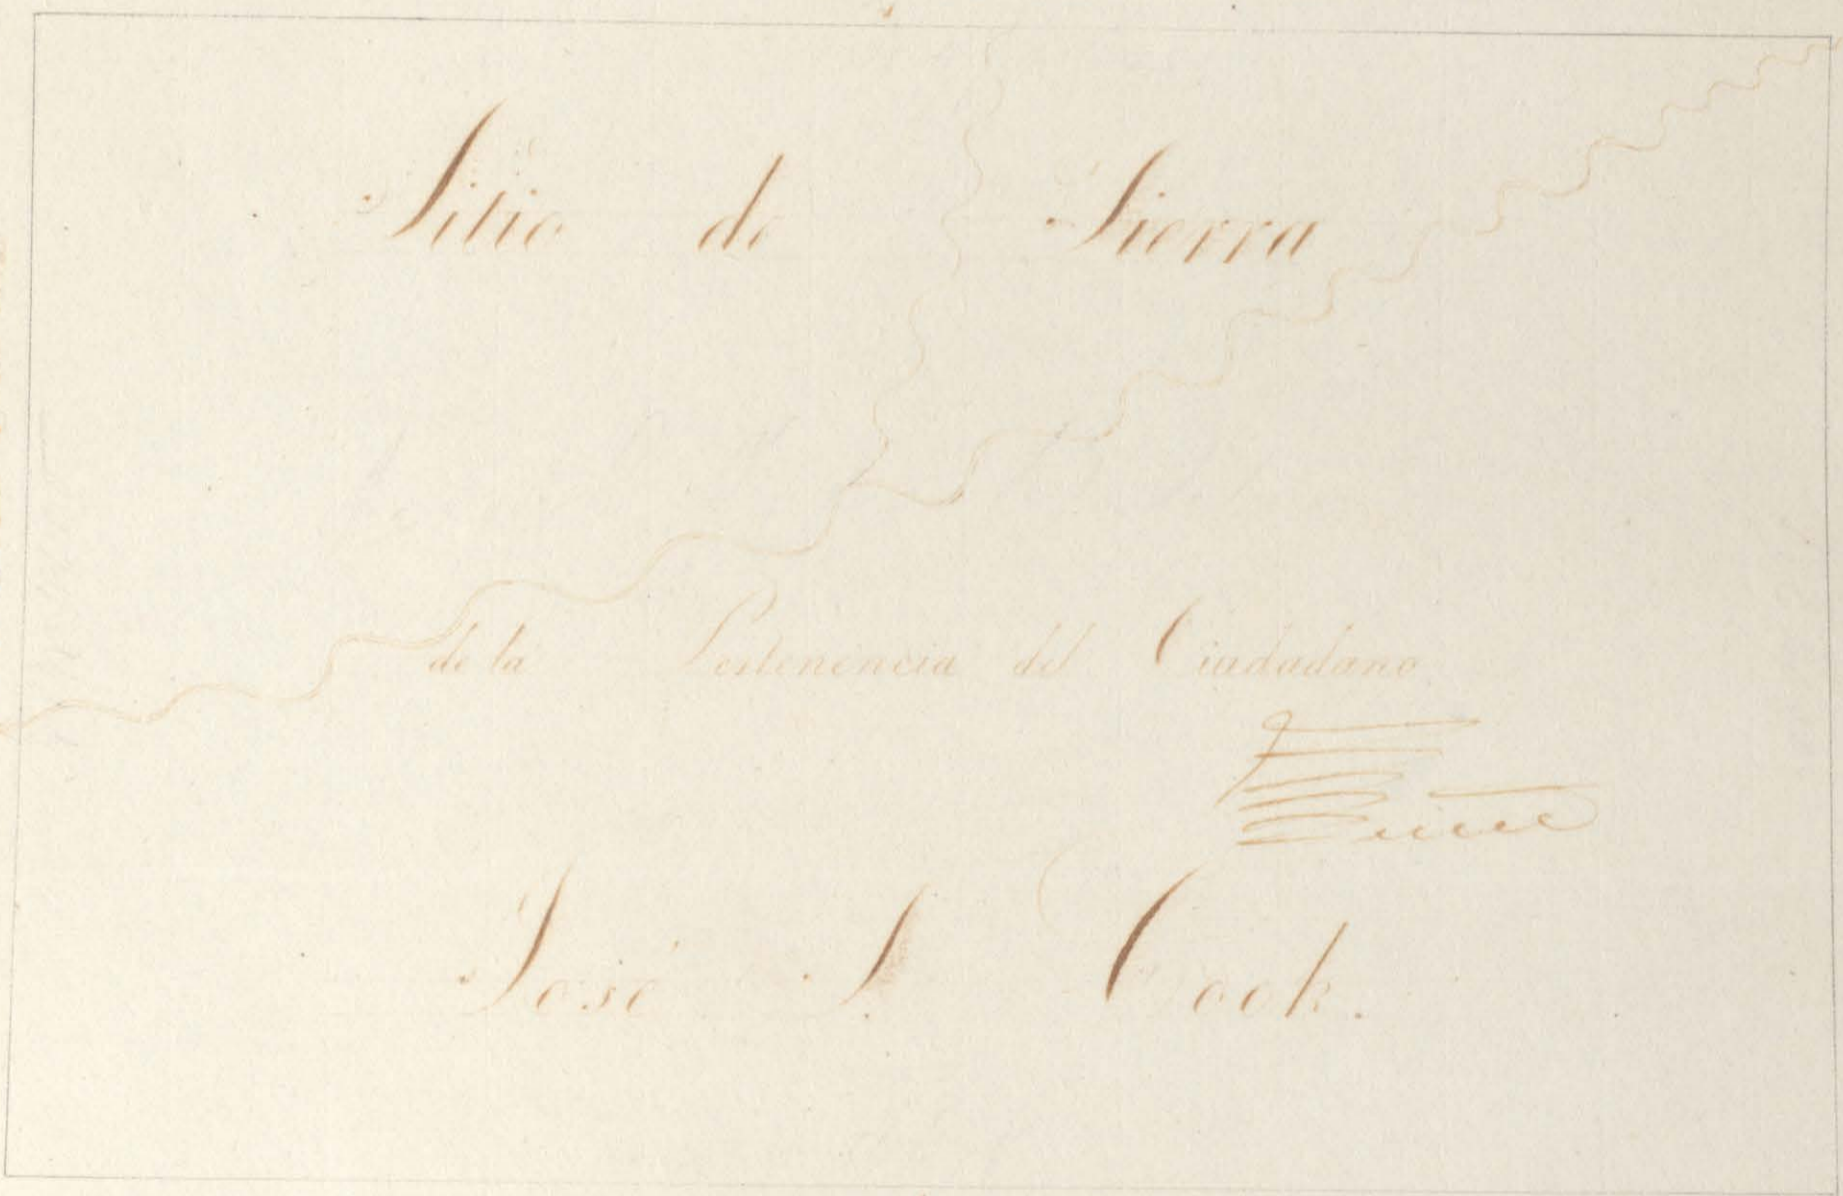 Sitio de Sierra
de la Pertenencia del Ciudadano
José S. Cook.